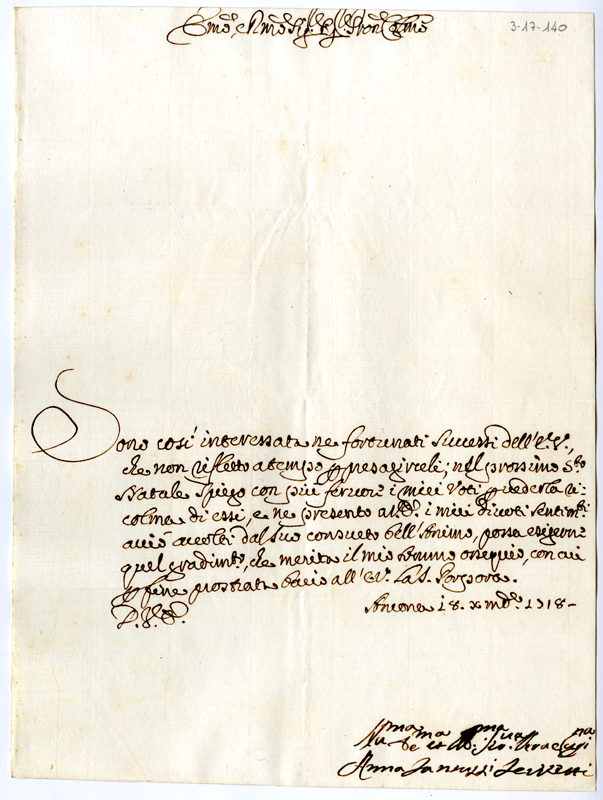 Em.o e Rmo Sig.r e Pron Colmo
3-17-140
Sono così interessata ne fortunati successi dell'E.V.,
che non rifletto a tempo p presagirceli; nel prossimo S.to
Natale spiego con più fervore i miei Voti p vederla
colma di essi, e ne presento i miei divoti sentim.ti
acciò accolti dal suo consueto bell'Animo, possa esigere
quel gradim.to, che merita il mio ossequio, con cui
p fine prostrata bacio all'E.V. la S. Porpora.
Ancona 18. xmbre 1718-
D. V. E.
Anna